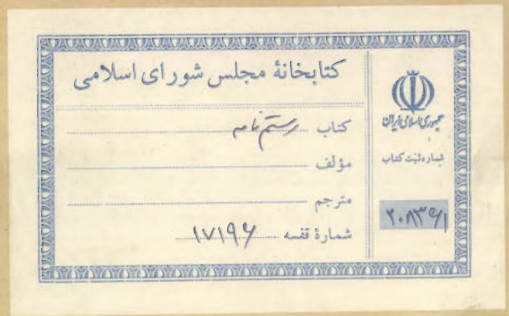 کتابخانهٔ مجلس شورای اسلامی
کتاب رستم نامه
مؤلف
مترجم
شمارهٔ قفسه ۱۷۱۹۶
جمهوری اسلامی ایران
شماره ثبت کتاب